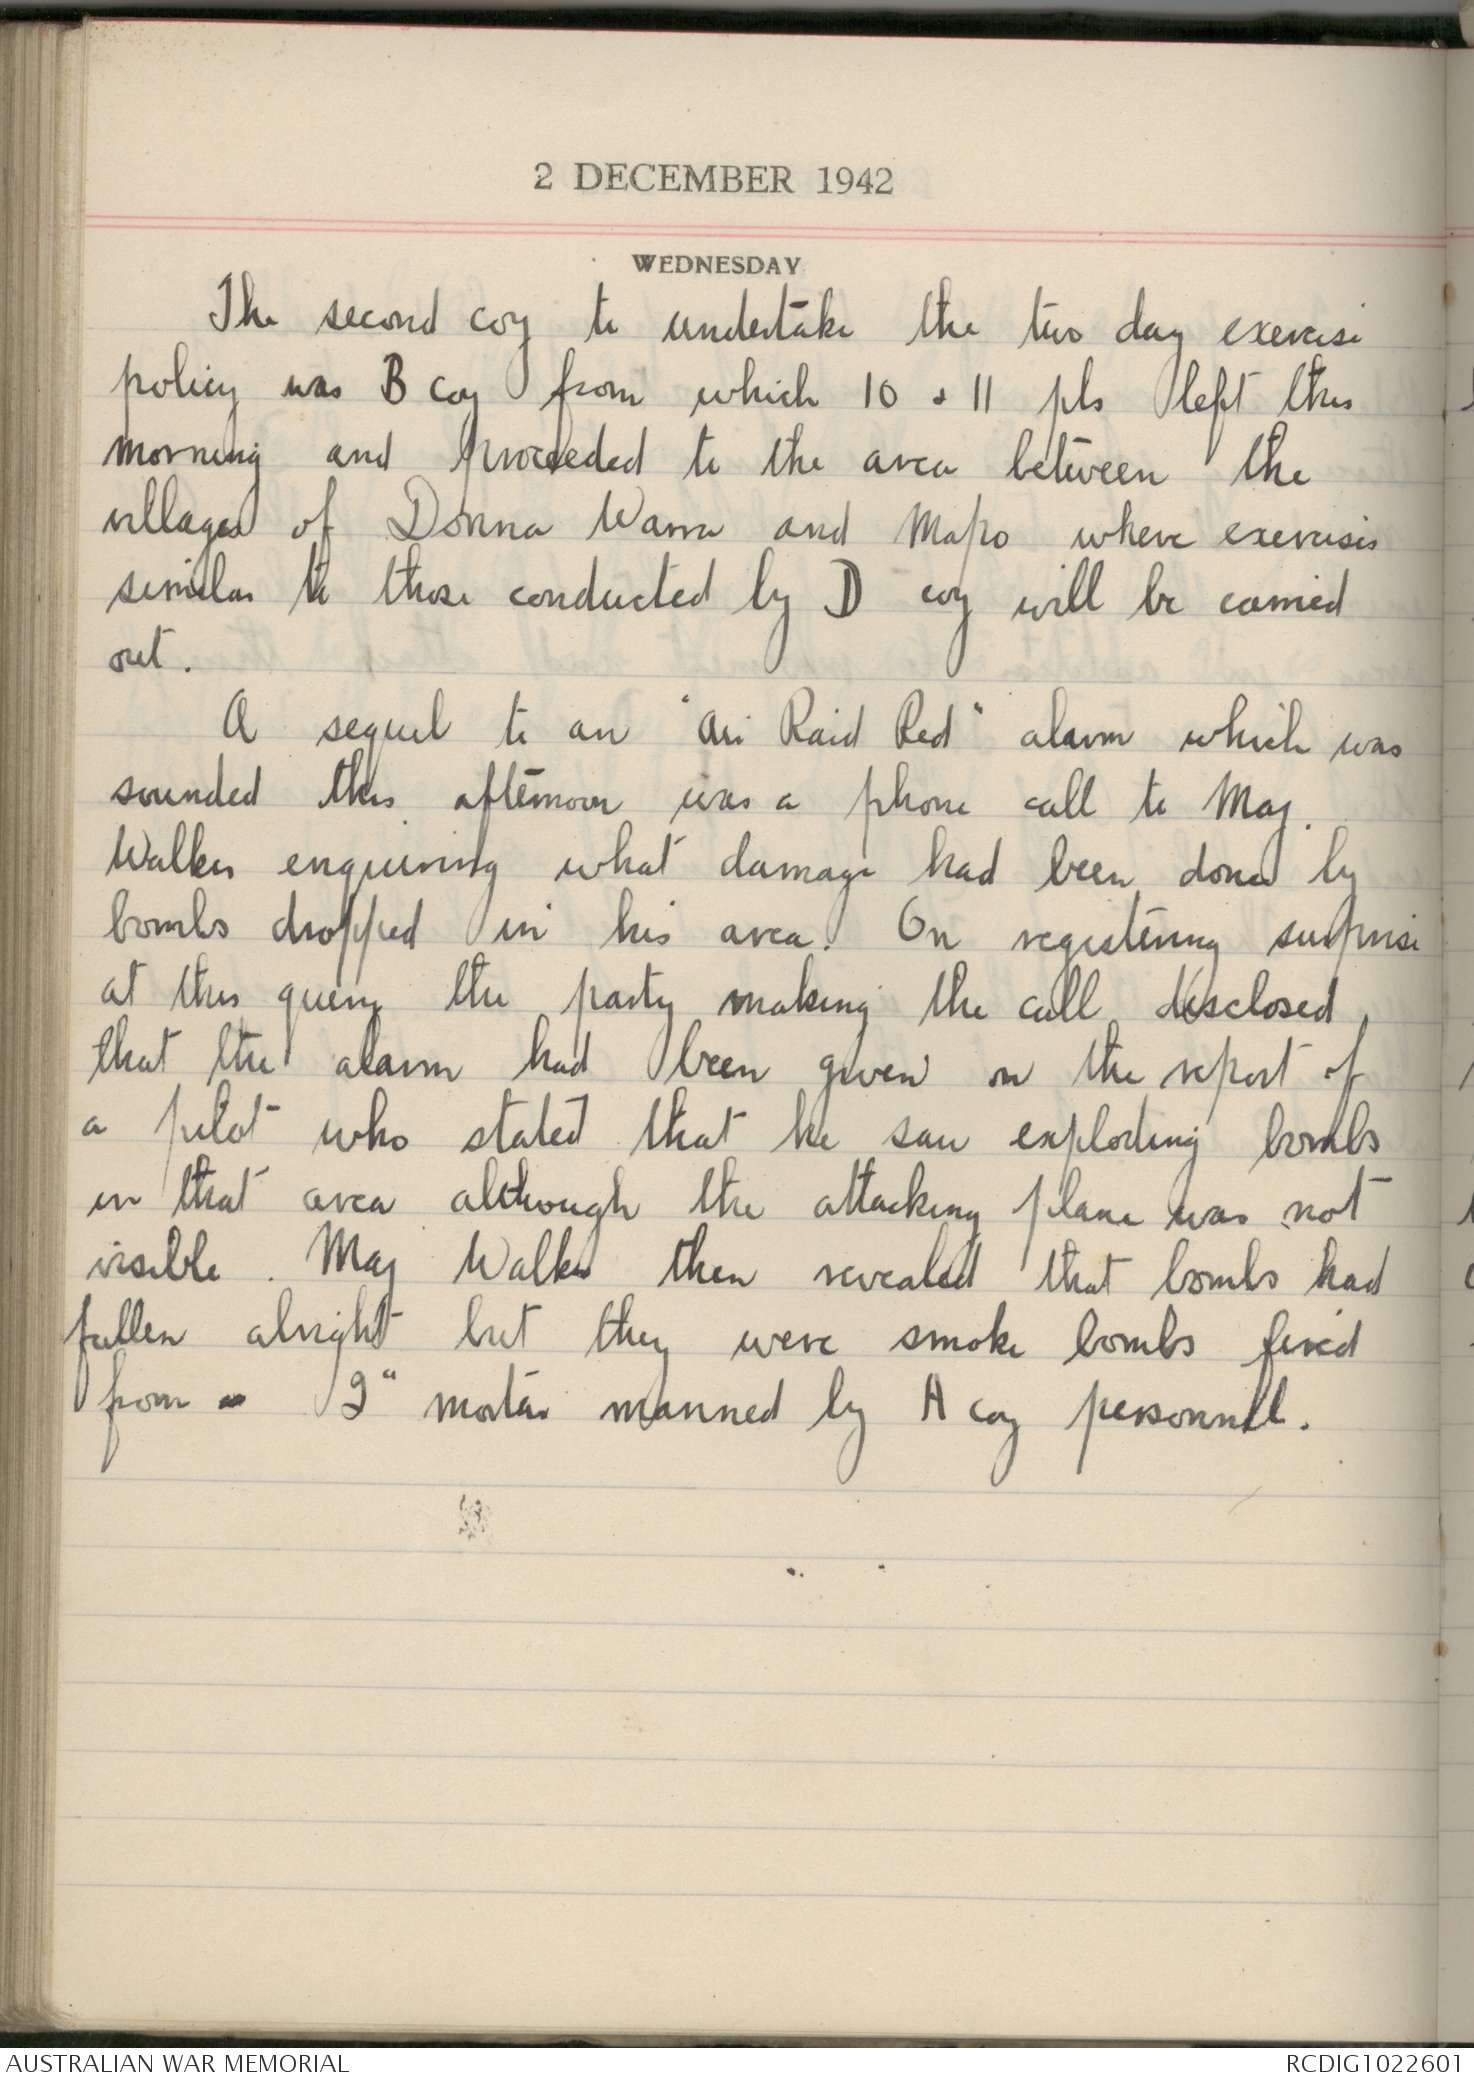 2 DECEMBER 1942
WEDNESDAY
The second coy to undertake the two day exercise
policy was B coy from which 10 & 11 pls left this
morning and proceeded to the area between the
villages of Donna Warra and Mapo where exercises
similar to those conducted by D coy will be carried
out.
A sequel to an "Air Raid Red" alarm which was
sounded this afternoon was a phone call to Maj.
Walker enquiring what damage had been done by
bombs dropped in his area. On registering surprise
at this query the party making the call disclosed
that the alarm had been given on the report of
a pilot who stated that he saw exploding bombs
in that area although the attacking plane was not
visible. Maj Walker then revealed that bombs had
fallen alright but they were smoke bombs fired
from a 2" mortar manned by A coy personnel.
AUSTRALIAN WAR MEMORIAL
RCDIG1022601